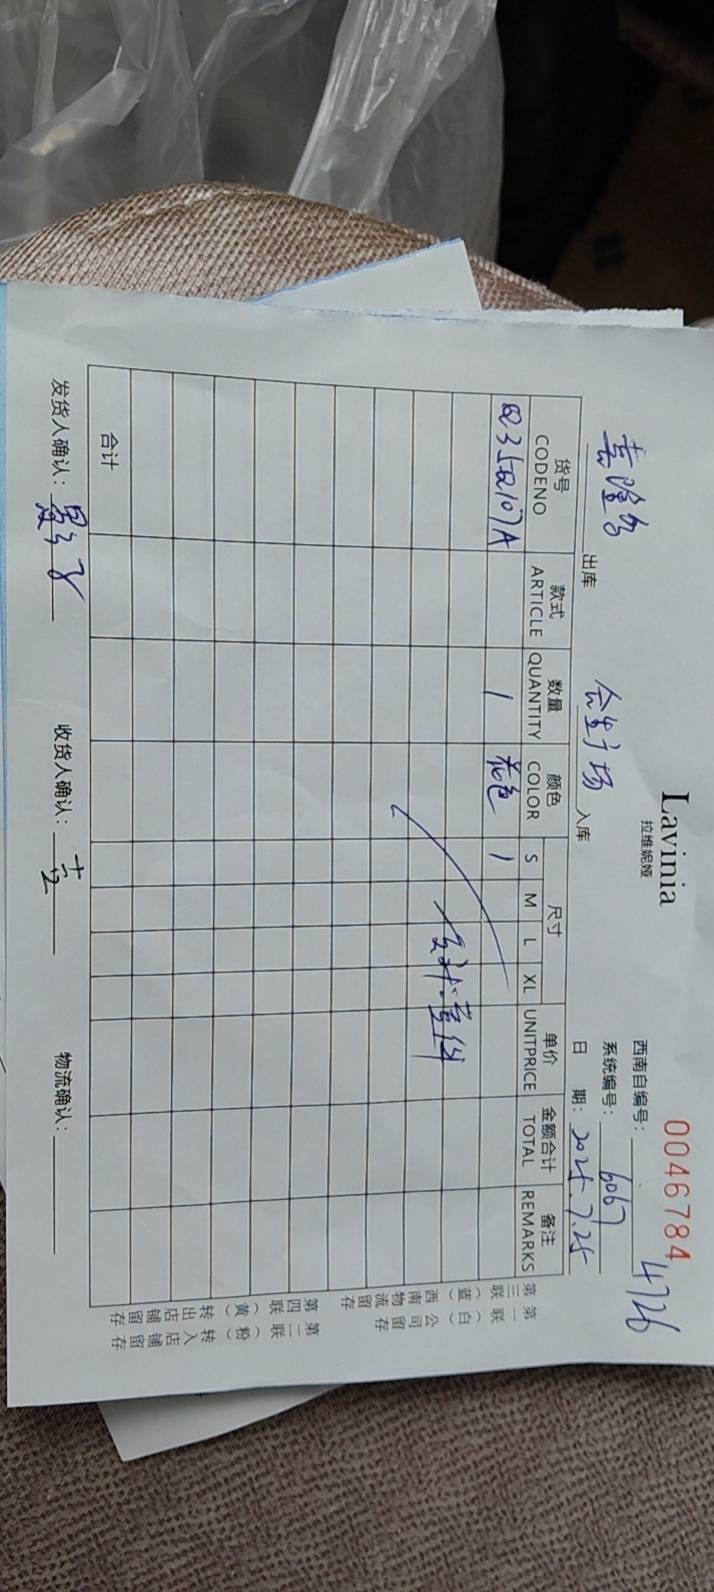 Lavinia
拉维妮娅
0046784
4726
西南自编号:
系统编号: 6067
日 期: 2025.7.25
吉隆 出库
会生广场 入库
货号 款式 数量 颜色 尺寸 单价 金额合计 备注
CODENO ARTICLE QUANTITY COLOR S M L XL UNITPRICE TOTAL REMARKS
Q35Q107A 1 花色 1
合计
发货人确认:
收货人确认:
物流确认:
第一联(白)公司留存
第三联(蓝)西南物流留存
第二联(粉)转入店铺留存
第四联(黄)转出店铺留存